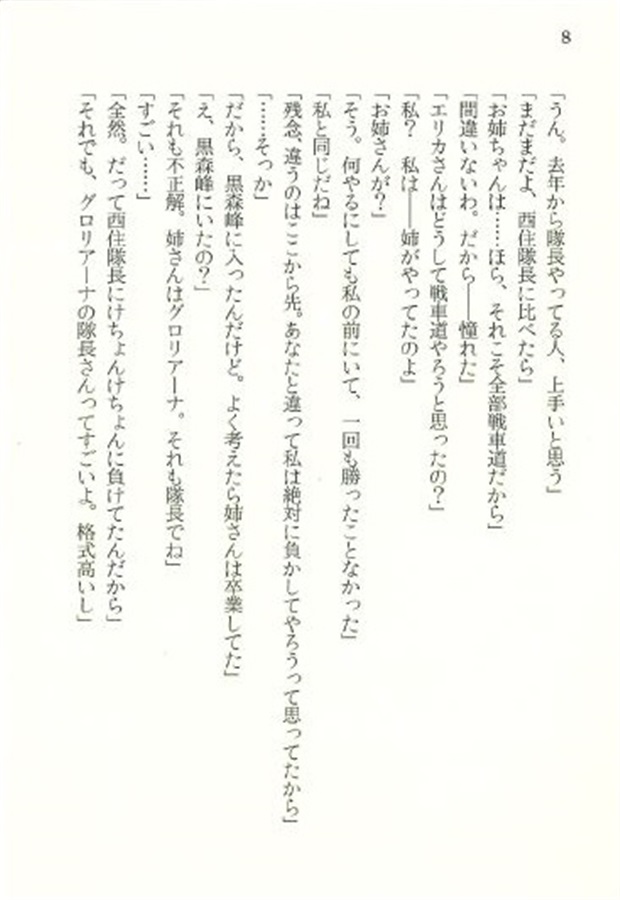 8
「うん。去年から隊長やってる人、上手いと思う」
「まだまだよ、西住隊長に比べたら」
「お姉ちゃんは……ほら、それこそ全部戦車道だから」
「間違いないわ。だから――憧れた」
「エリカさんはどうして戦車道やろうと思ったの？」
「私？　私は――姉がやってたのよ」
「お姉さんが？」
「そう。何やるにしても私の前にいて、一回も勝ったことなかった」
「私と同じだね」
「残念、違うのはここから先。あなたと違って私は絶対に負かしてやろうって思ってたから」
「……そっか」
「だから、黒森峰に入ったんだけど。よく考えたら姉さんは卒業してた」
「え、黒森峰にいたの？」
「それも不正解。姉さんはグロリアーナ。それも隊長でね」
「すごい……」
「全然。だって西住隊長にけちょんけちょんに負けてたんだから」
「それでも、グロリアーナの隊長さんってすごいよ。格式高いし」